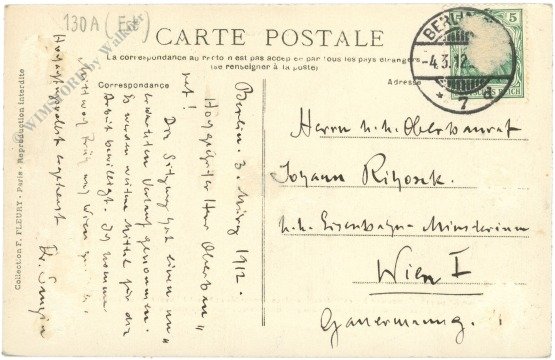 130A (Esf)
CARTE POSTALE
La correspondance au recto n'est pas acceptée par tous les pays étrangers
(se renseigner à la poste)
Correspondance
Adresse
BERLIN
-4.3.12
* 7 d
5
Berlin 3. März 1912.
Hochgeehrter Herr Oberbau"
rat!
Die Sitzung hat einen un"
erwarteten Verlauf genommen.
Es werden weitere Mittel für die
Arbeit bewilligt. Ich komme
Mittwoch früh nach Wien
Hochachtungsvollst ergebenst
Dr.
Herrn k.k. Oberbaurat
Johann Rihosek.
k.k. Eisenbahn-Ministerium
Wien I
Collection F. FLEURY - Paris - Reproduction interdite
WIMSTORE by Walker